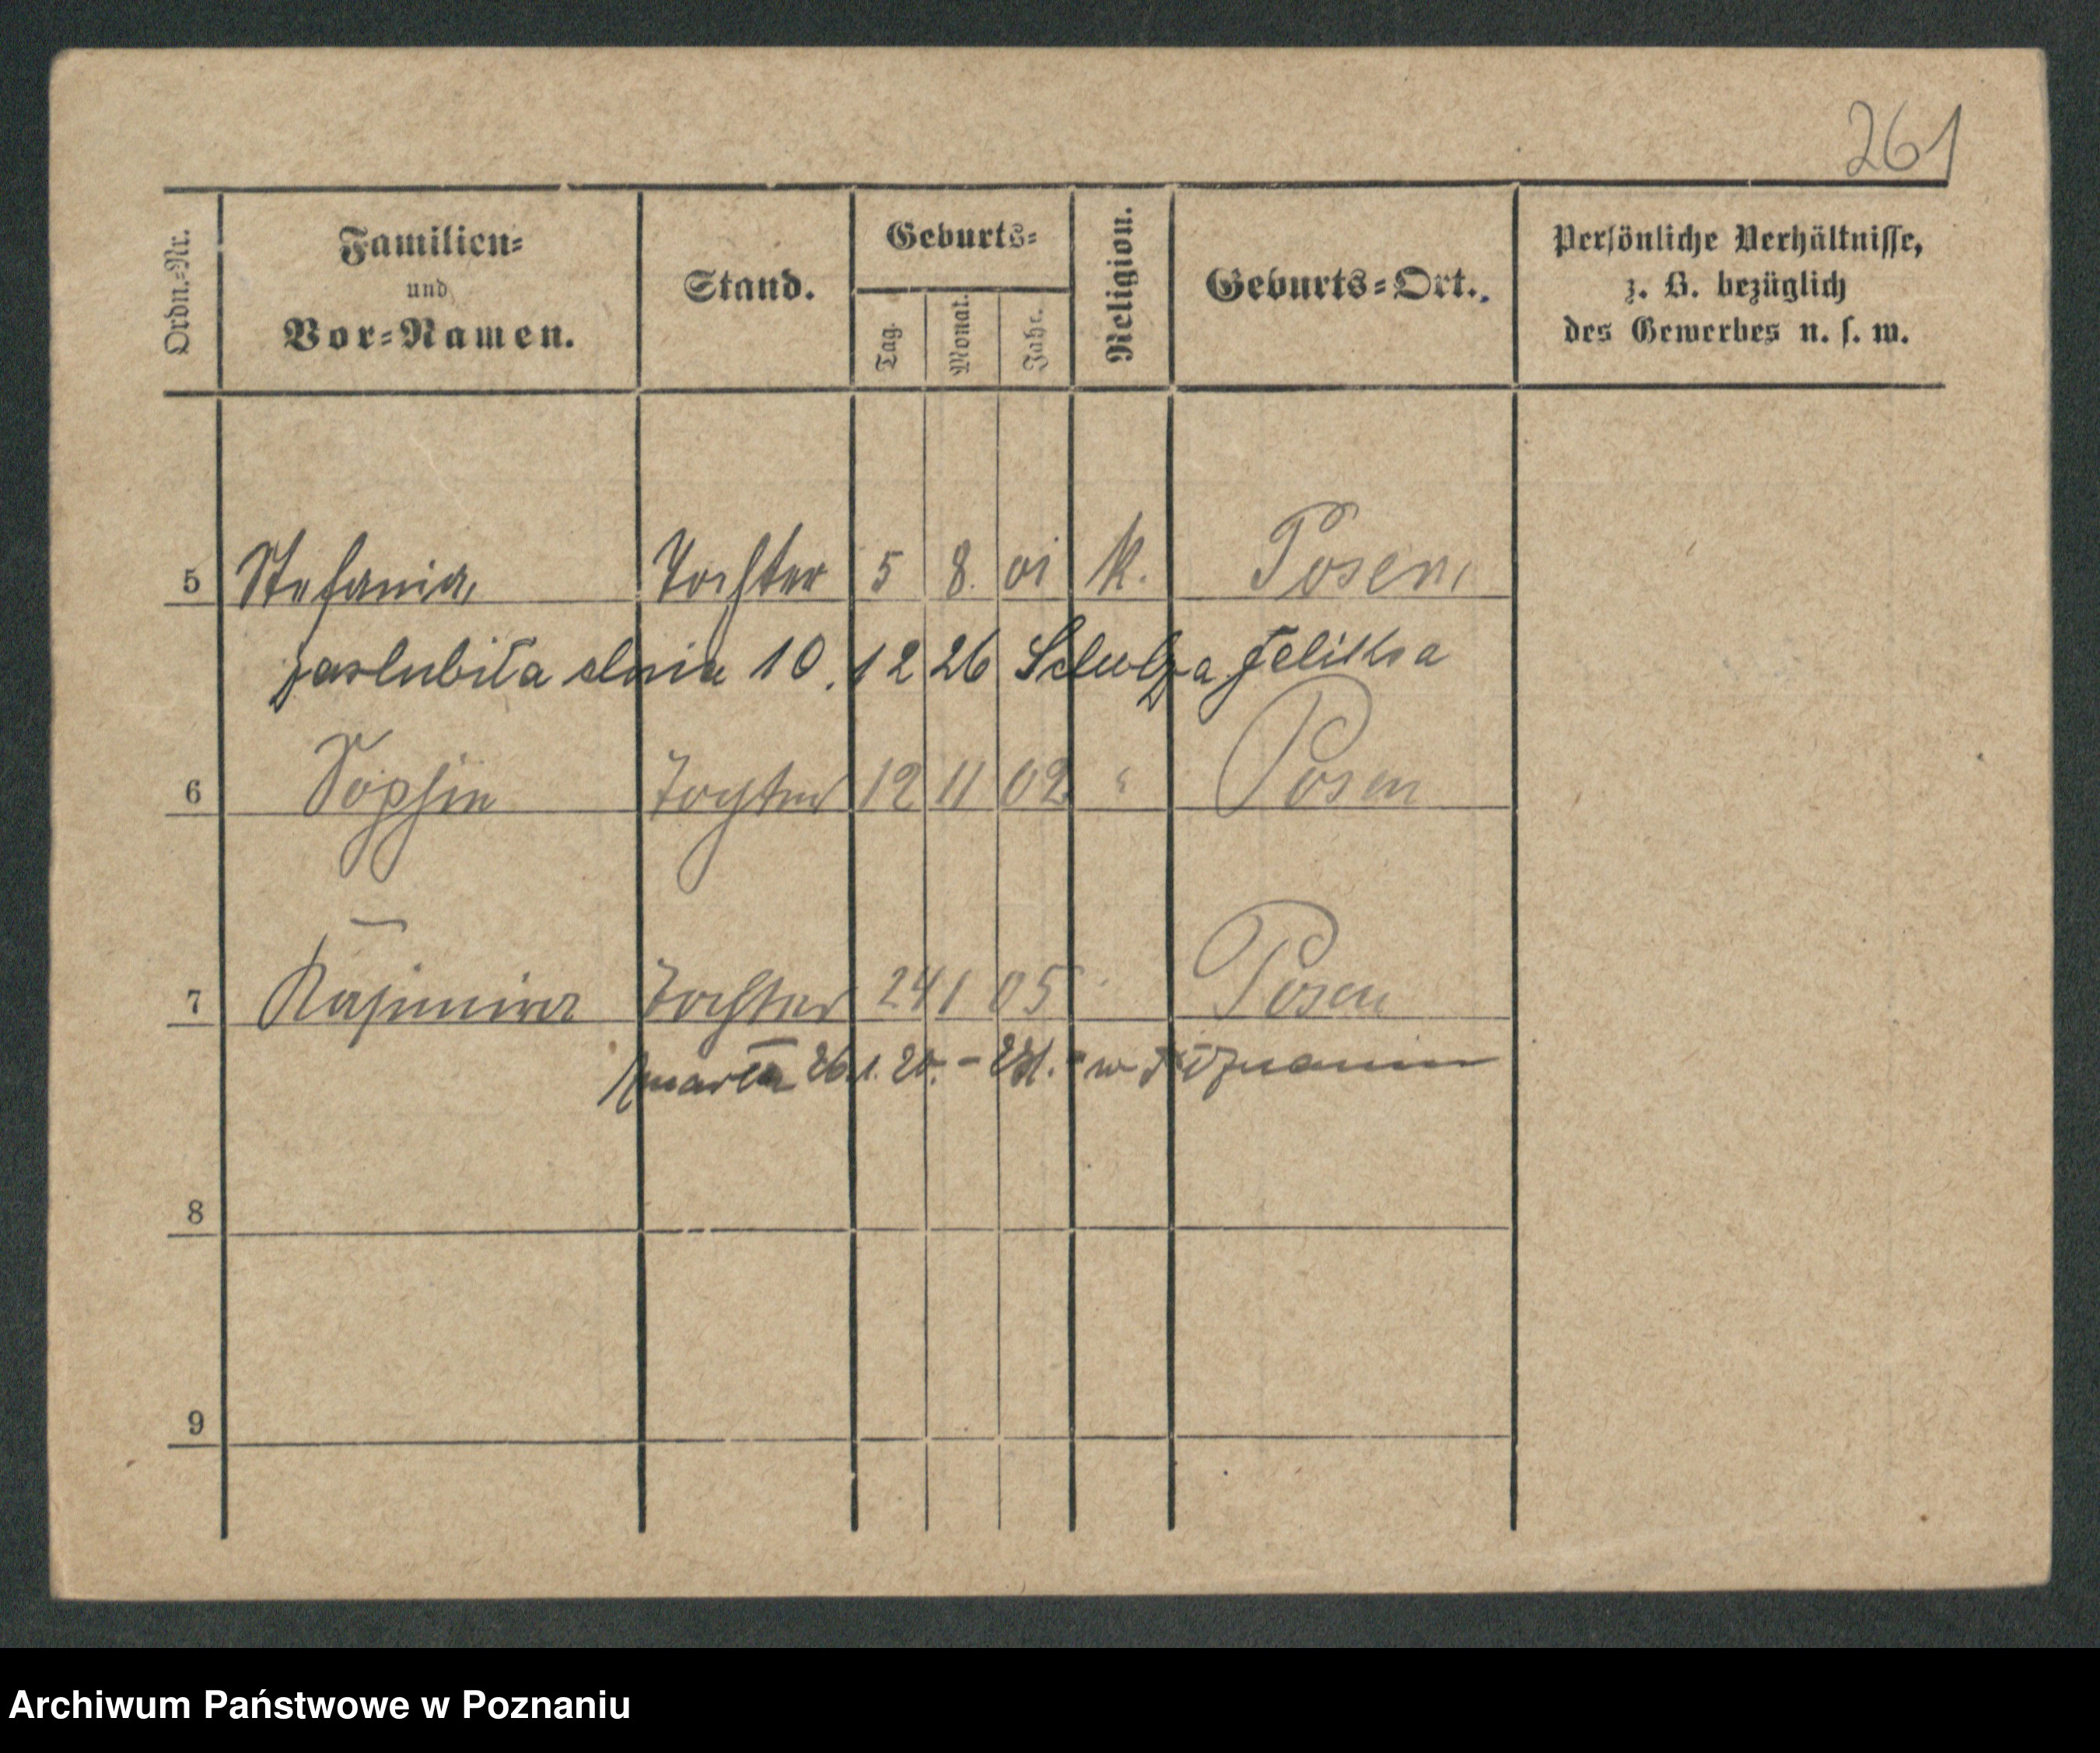 261
Ordn.-Nr.
Familien-
und
Vor-Namen.
Stand.
Geburts-
Tag.
Monat.
Jahr.
Religion.
Geburts-Ort.
Persönliche Verhältnisse,
z. B. bezüglich
des Gewerbes u. s. w.
5 Stefania Tochter 5 8. 01 k. Posen
zaslubiła dnia 10.12 26 Schulza Feliksa
6 Sophie Tochter 12 11 02 " Posen
7 Kasimira Tochter 24 1 05 Posen
zmarła 26.1.20. - w Poznaniu
8
9
Archiwum Państwowe w Poznaniu